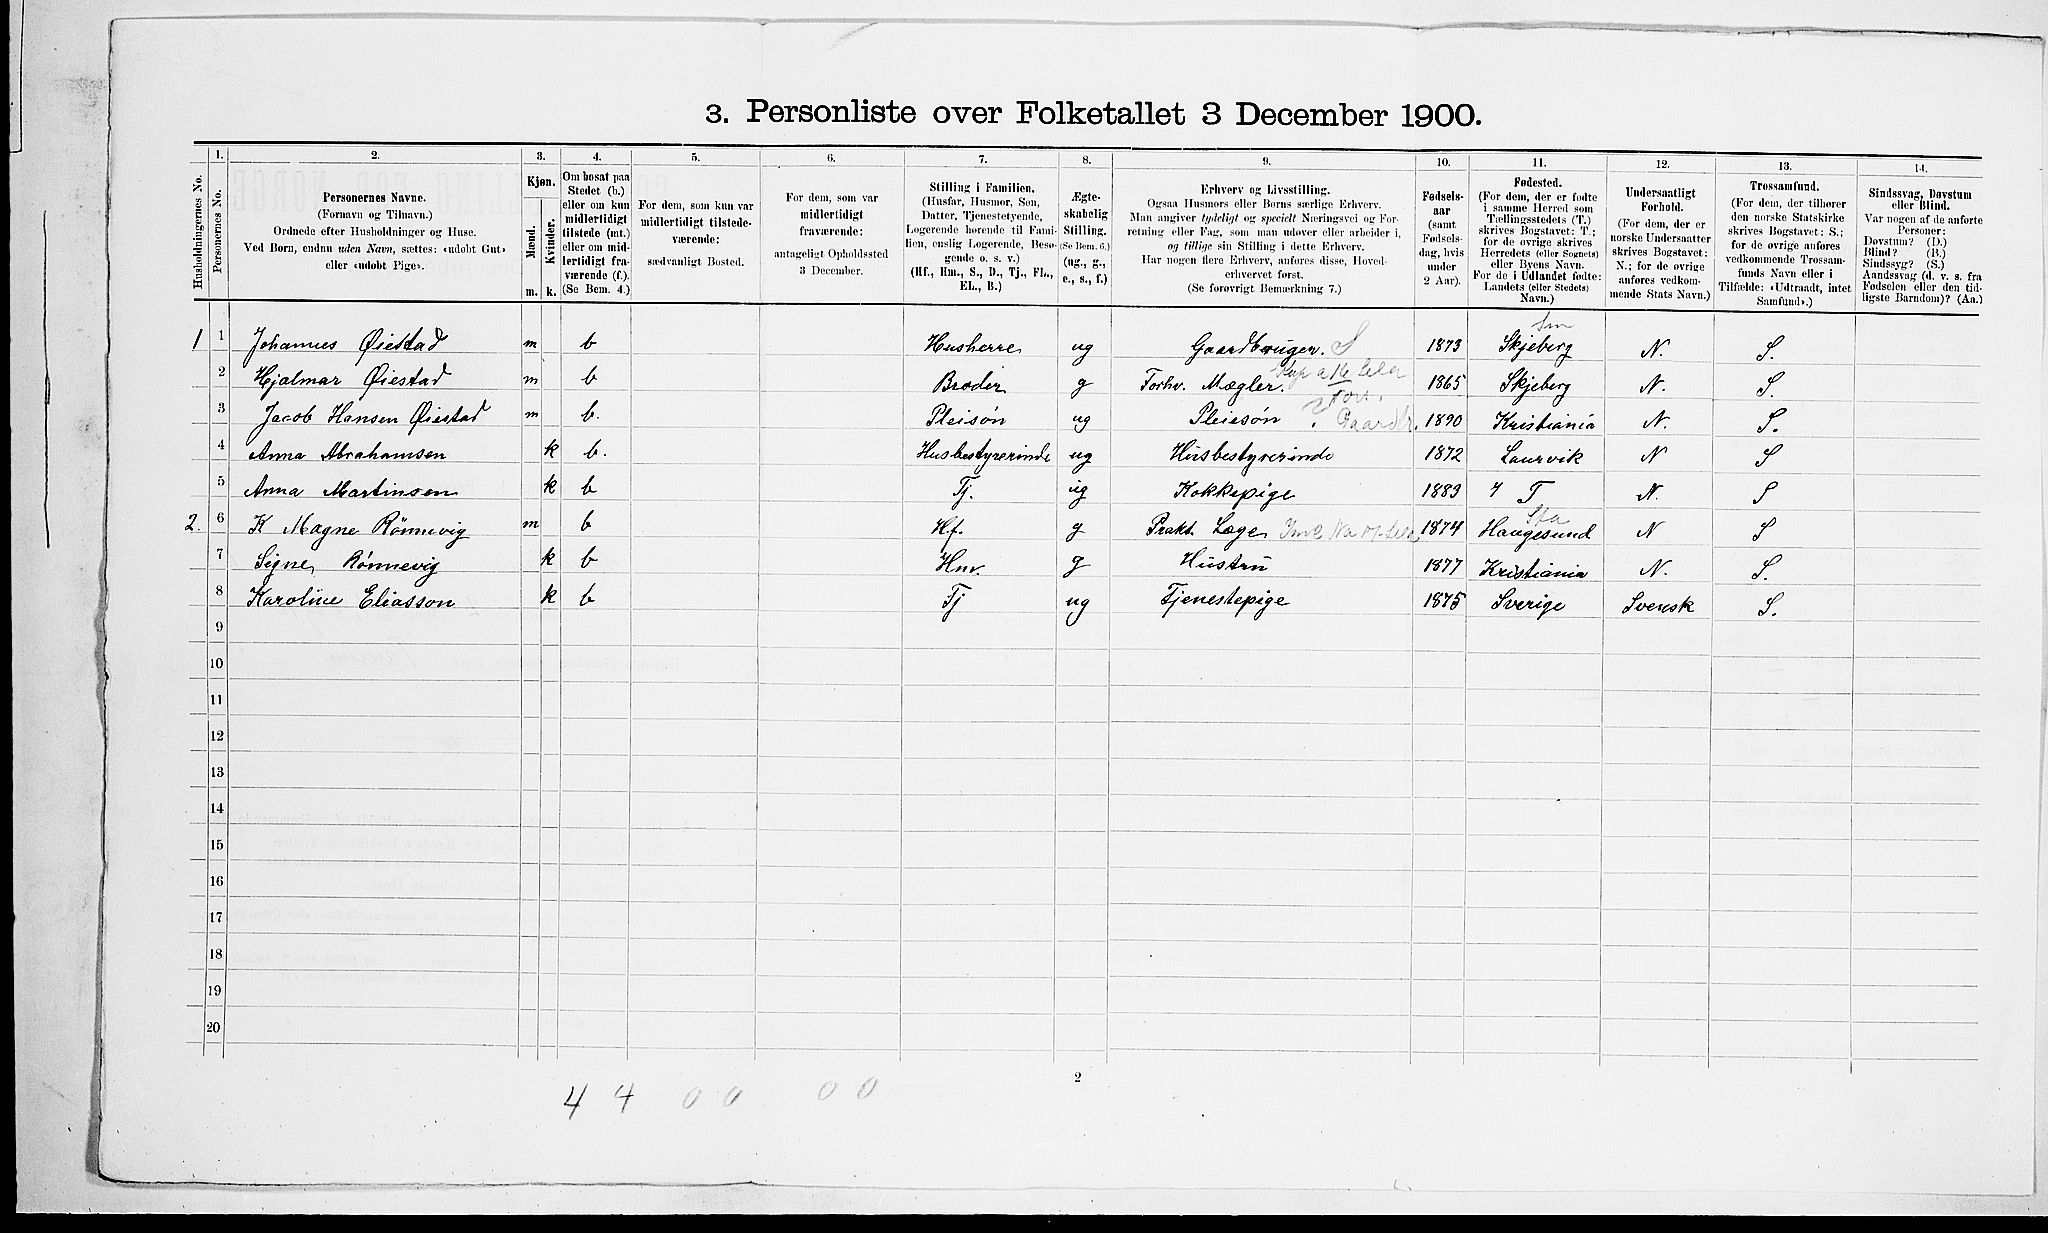 3. Personliste over Folketallet 3 December 1900.
Husholdningernes No.
1.
Personernes No.
2.
Personernes Navne.
(Fornavn og Tilnavn.)
Ordnede efter Husholdninger og Huse.
Ved Børn, endnu uden Navn, sættes: «udøbt Gut»
eller «udøbt Pige».
3.
Kjøn.
Mænd.
Kvinder.
m. k.
4.
Om bosat paa
Stedet (b.)
eller om kun
midlertidigt
tilstede (mt.)
eller om mid-
lertidigt fra-
værende (f.).
(Se Bem. 4.)
5.
For dem, som kun var
midlertidigt tilstede-
værende:
sædvanligt Bosted.
6.
For dem, som var
midlertidigt
fraværende:
antageligt Opholdssted
3 December.
7.
Stilling i Familien.
(Husfar, Husmor, Søn,
Datter, Tjenestetyende,
Logerende hørende til Fami-
lien, enslig Logerende, Besø-
gende o. s. v.)
(Hf., Hm., S., D., Tj., FL.,
EL., B.)
8.
Ægte-
skabelig
Stilling.
(Se Bem. 6.)
(ug., g.,
e., s., f.)
9.
Erhverv og Livsstilling.
Ogsaa Husmors eller Børns særlige Erhverv.
Man angiver tydeligt og specielt Næringsvei og For-
retning eller Fag, som man udøver eller arbeider i,
og tillige sin Stilling i dette Erhverv.
Har nogen flere Erhverv, anføres disse, Hoved-
erhvervet først.
(Se forøvrigt Bemærkning 7.)
10.
Fødsels-
aar
(samt
Fødsels-
dag, hvis
under
2 Aar).
11.
Fødested.
(For dem, der er fødte
i samme Herred som
Tællingsstedets (T.)
skrives Bogstavet: T.;
for de øvrige skrives
Herredets (eller Sognets)
eller Byens Navn.
For de i Udlandet fødte:
Landets (eller Stedets)
Navn.)
12.
Undersaatligt
Forhold.
(For dem, der er
norske Undersaatter
skrives Bogstavet:
N.; for de øvrige
anføres vedkom-
mende Stats Navn.)
13.
Trossamfund.
(For dem, der tilhører
den norske Statskirke
skrives Bogstavet: S.;
for de øvrige anføres
vedkommende Trossam-
funds Navn eller i
Tilfælde: «Udtraadt, intet
Samfund».)
14.
Sindssvag, Døvstum
eller Blind.
Var nogen af de anførte
Personer:
Døvstum? (D.)
Blind? (B.)
Sindssyg? (S.)
Aandssvag (d. v. s. fra
Fødselen eller den tid-
ligste Barndom)? (Aa.)
1 1 Johannes Øiestad m b Husherre ug Gaardbruger. S 1873 Skjeberg N. S.
2 Hjalmar Øiestad m b Broder g Forhv. Mægler. 1865 Skjeberg N. S.
3 Jacob Hansen Øiestad m b. Pleisøn ug Pleiesøn Gaardbr. 1890 Kristiania N. S.
4 Anna Abrahamsen k b. Husbestyrerinde ug Husbestyrerinde 1872 Laurvik N S
5 Anna Martinsen k b Tj. ug Kokkepige 1883 T N. S
2. 6 K Magne Rönnevig m b Hf. g Prakt. Læge 1874 Haugesund N S
7 Signe Rønnevig k b Hm. g Hustru 1877 Kristiania N. S.
8 Karoline Eliasson k b Tj ug Tjenestepige 1875 Sverige Svensk S.
9
10
11
12
13
14
15
16
17
18
19
20
2
4 4 0 0 0 0